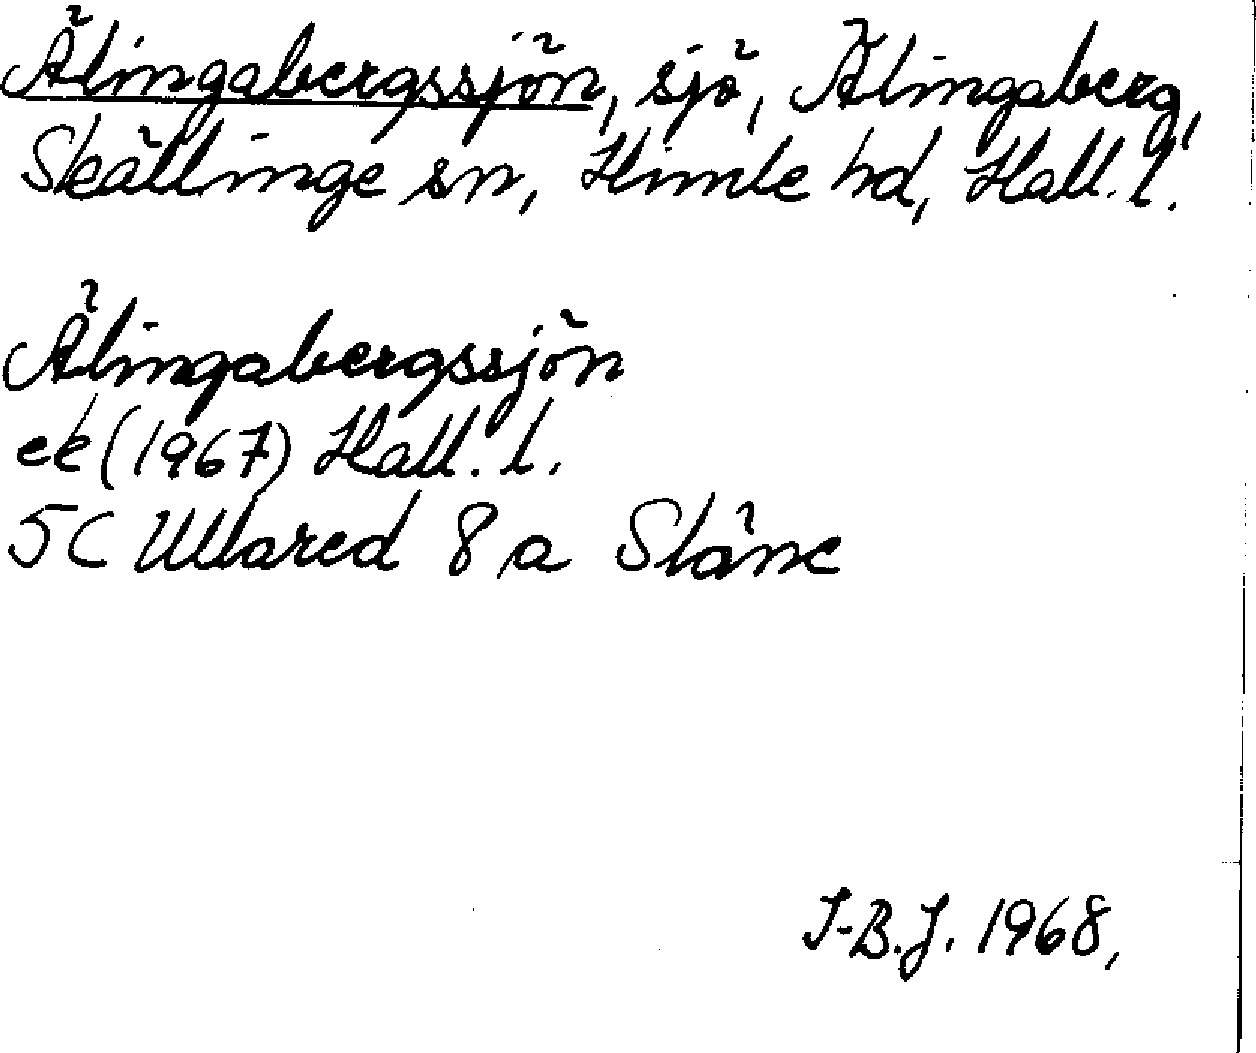 Älingabergssjön, sjö, Älingaberg,
Skällinge sn, Himle hd, Hall. l.
Älingabergssjön
ek (1967) Hall. l.
5C Ullared 8 a Släne
I-B.J. 1968,